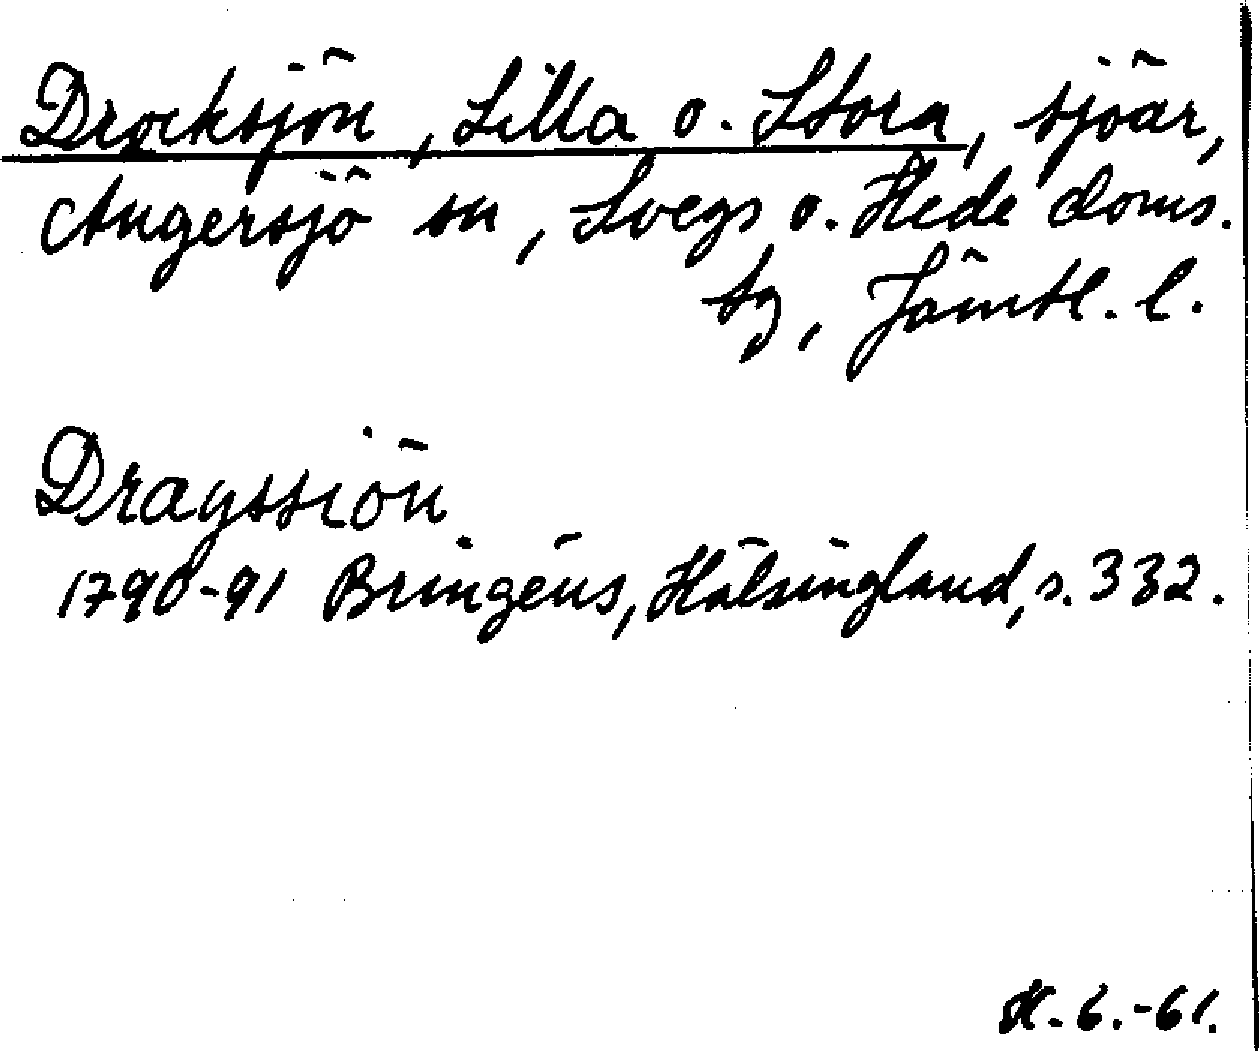 Drocksjön, Lilla o. Stora, sjöar,
Ängersjö sn, Svegs o. Hede doms.
sg, Jämtl. l.
Dragssiön
1790-91 Bringéus, Hälsingland, s. 332.
H. 6.-61.